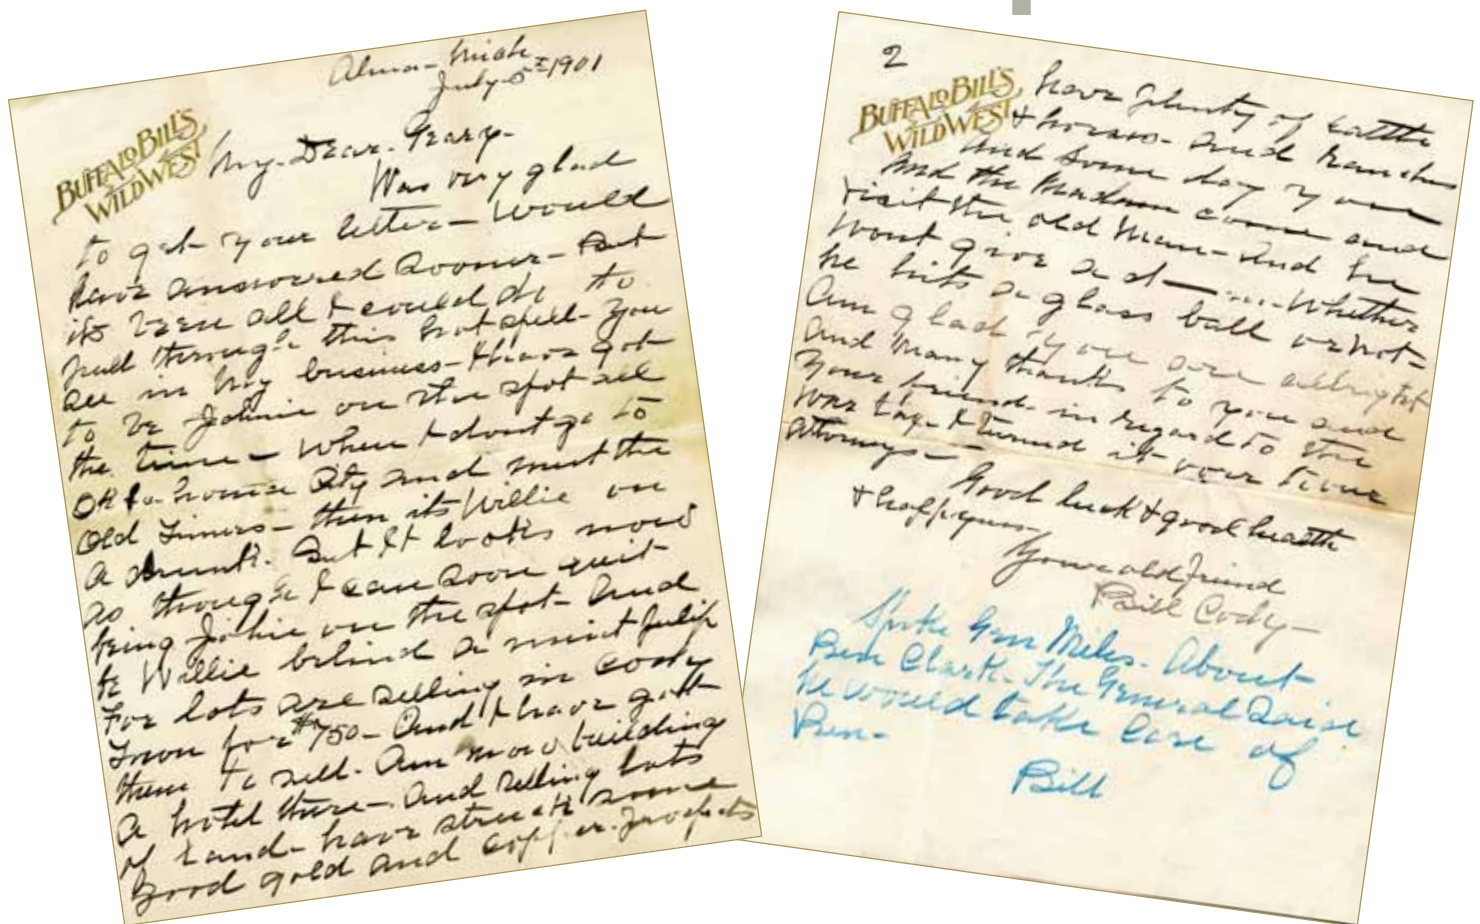 Alma - Mich
July 5th 1901
BUFFALO BILL'S
WILD WEST
My - Dear - Geary -
Was very glad
to get your letter - Would
have answered sooner - But
its been all I could do to
pull through this hot spell - You
see in my business - I have got
to be Johnie on the spot all
the time - When I dont go to
Oklahoma City and meet the
Old Timers - then its Willie on
a drunk. But It looks now
as though I can soon quit
being Johie on the spot - And
be Willie behind a mint Julip
For lots are selling in Cody
Town for $750 - And I have gott
them to sell. Am now building
a hotel there - and selling lots
of land - have struck some
good gold and copper - prospects
2
BUFFALO BILL'S
WILD WEST
have plenty of cattle
& horses - and Ranches
And some day you
And the Madam come and
visit the old Man - And he
wont give a d—m - Whether
he hits a glass ball or not -
Am glad you are allright
And Many thanks to you and
Your friend - in regard to the
War tax - I turned it over to our
attorney -
Good luck & good health
& happyness
Your old friend
Bill Cody -
Spoke Gen Miles - About
Ben Clark - The General Said
he would take care of
Ben -
Bill